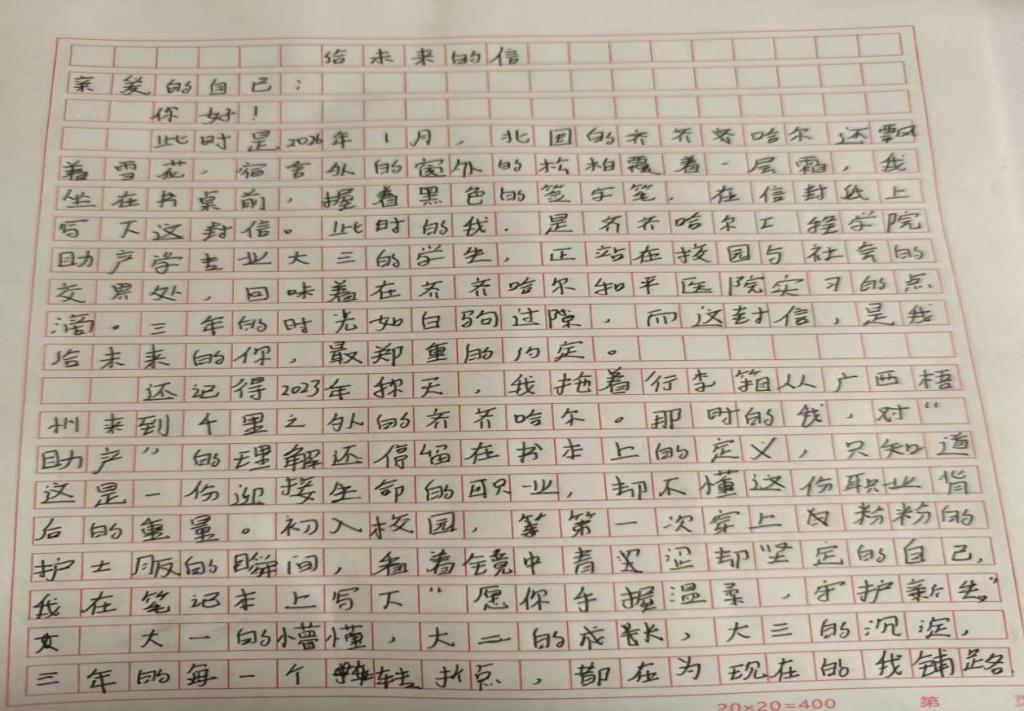 给未来的信
亲爱的自己：
你好！
此时是2026年1月，北国的齐齐哈尔还飘
着雪花，宿舍外的窗外的松柏覆着一层霜，我
坐在书桌前，握着黑色的签字笔，在信封纸上
写下这封信。此时的我，是齐齐哈尔工程学院
助产学专业大三的学生，正站在校园与社会的
交界处，回味着在齐齐哈尔和平医院实习的点
滴。三年的时光如白驹过隙，而这封信，是我
给未来的你，最郑重的约定。
还记得2023年秋天，我拖着行李箱从广西梧
州来到千里之外的齐齐哈尔。那时的我，对“
助产”的理解还停留在书本上的定义，只知道
这是一份迎接生命的职业，却不懂这份职业背
后的重量。初入校园，第一次穿上粉粉的
护士服的瞬间，看着镜中青涩却坚定的自己，
我在笔记本上写下“愿你手握温柔，守护新生”
大一的懵懂，大二的成长，大三的沉淀，
三年的每一个转折点，都在为现在的我铺路
20×20=400
第 页